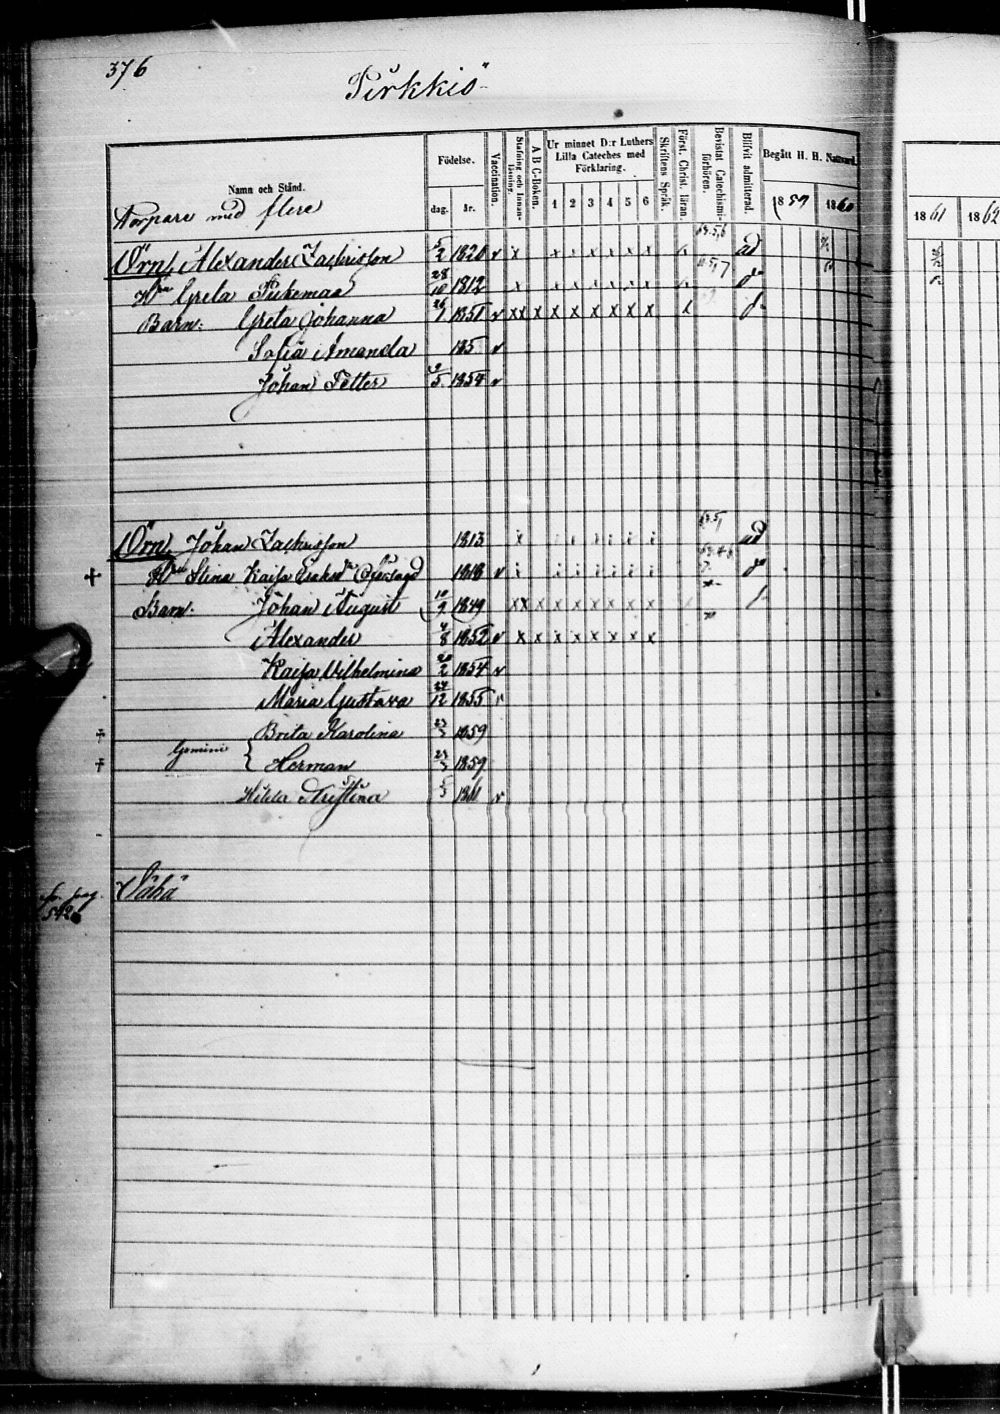 376
Pirkkiö
Namn och Stånd.
Födelse.
dag.
år.
Vaccination.
Stafning och Innanläsning.
A B C-Boken.
Ur minnet D:r Luthers Lilla Cateches med Förklaring.
1 2 3 4 5 6
Skriftens Språk.
Först. Christ. läran.
Bevistat Catechismiförhören.
Blifvit admitterad.
Begått H. H. Nattvard.
1859 1860
1861 1862
Torpare med flere
Örn, Alexander Zachrisson 5/2 1820 v x x x x x x x x ad
Hn Greta 28/10 1812 x x x x x x x x do
Barn: Greta Johanna 26/1 1851 v xx x x x x x x x x
Sofia Amanda 185 v
Johan Petter /5 1854 v
Örn, Johan Zachrisson 1813 x ad
+ Hn Stina Kaisa 1818 v
Barn: Johan August 10/9 1849 xx x x x x x x x
Alexander 4/8 1852 v x x x x x x x x
Kaisa Wilhelmina 20/2 1854 v
Maria Gustava 24/12 1855 v
† Brita Karolina 23/3 1859
Gemini {
† Herman 23/3 1859
Hilda Kristina 5/3 1861 v
Vähä
pag. 542